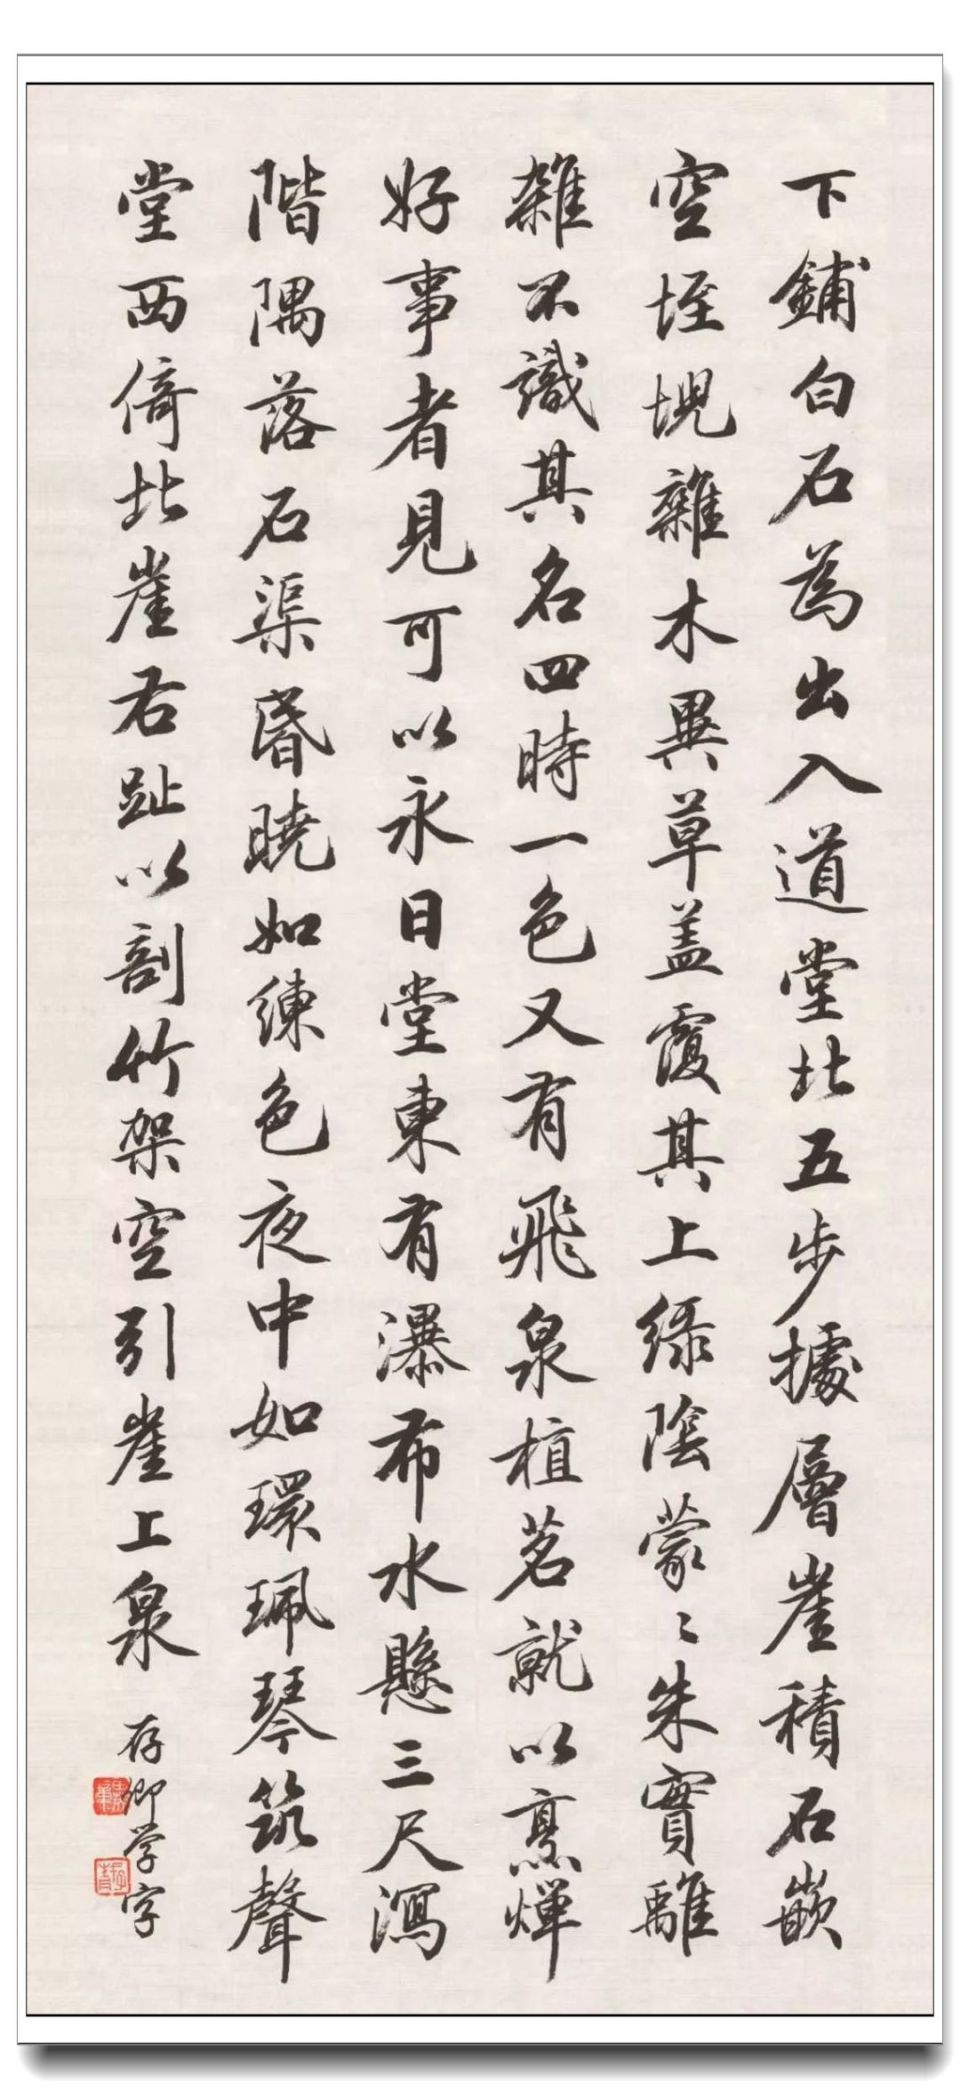 下鋪白石為出入道堂北五步據層崖積石嵌
空垤堄雜木異草盖覆其上緑陰蒙〻朱實離
雜不識其名四時一色又有飛泉植茗就以烹燀
好事者見可以永日堂東有瀑布水懸三尺瀉
階隅落石渠昏曉如練色夜中如環珮琴筑聲
堂西倚北崖右趾以剖竹架空引崖上泉
存卿学字